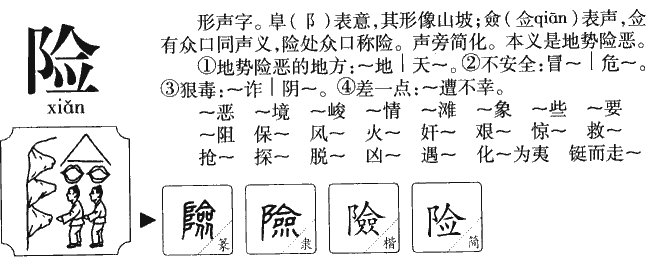 险
xiǎn
形声字。阜(阝)表意,其形像山坡;僉(佥qiān)表声,佥
有众口同声义,险处众口称险。声旁简化。本义是地势险恶。
①地势险恶的地方:～地|天～。②不安全:冒～|危～。
③狠毒:～诈|阴～。④差一点:～遭不幸。
～恶 ～境 ～峻 ～情 ～滩 ～象 ～些 ～要
～阻 保～ 风～ 火～ 奸～ 艰～ 惊～ 救～
抢～ 探～ 脱～ 凶～ 遇～ 化～为夷 铤而走～
險 篆 險 隶 險 楷 险 简